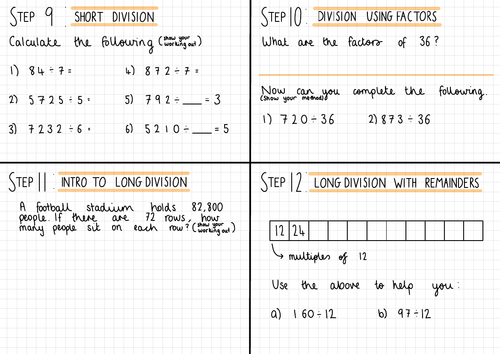 STEP 9 SHORT DIVISION
Calculate the following (show your working out)
1) 84÷7=
4) 872÷7=
2) 5725÷5=
5) 792÷___=3
3) 7232÷6=
6) 5210÷___=5
STEP 10: DIVISION USING FACTORS
What are the factors of 36?
Now can you complete the following.
(show your method)
1) 720÷36
2) 873÷36
STEP 11: INTRO TO LONG DIVISION
A football stadium holds 82,800
people. If there are 72 rows, how
many people sit on each row? (show your working out)
STEP 12: LONG DIVISION WITH REMAINDERS
12 24
multiples of 12
Use the above to help you:
a) 160÷12
b) 97÷12